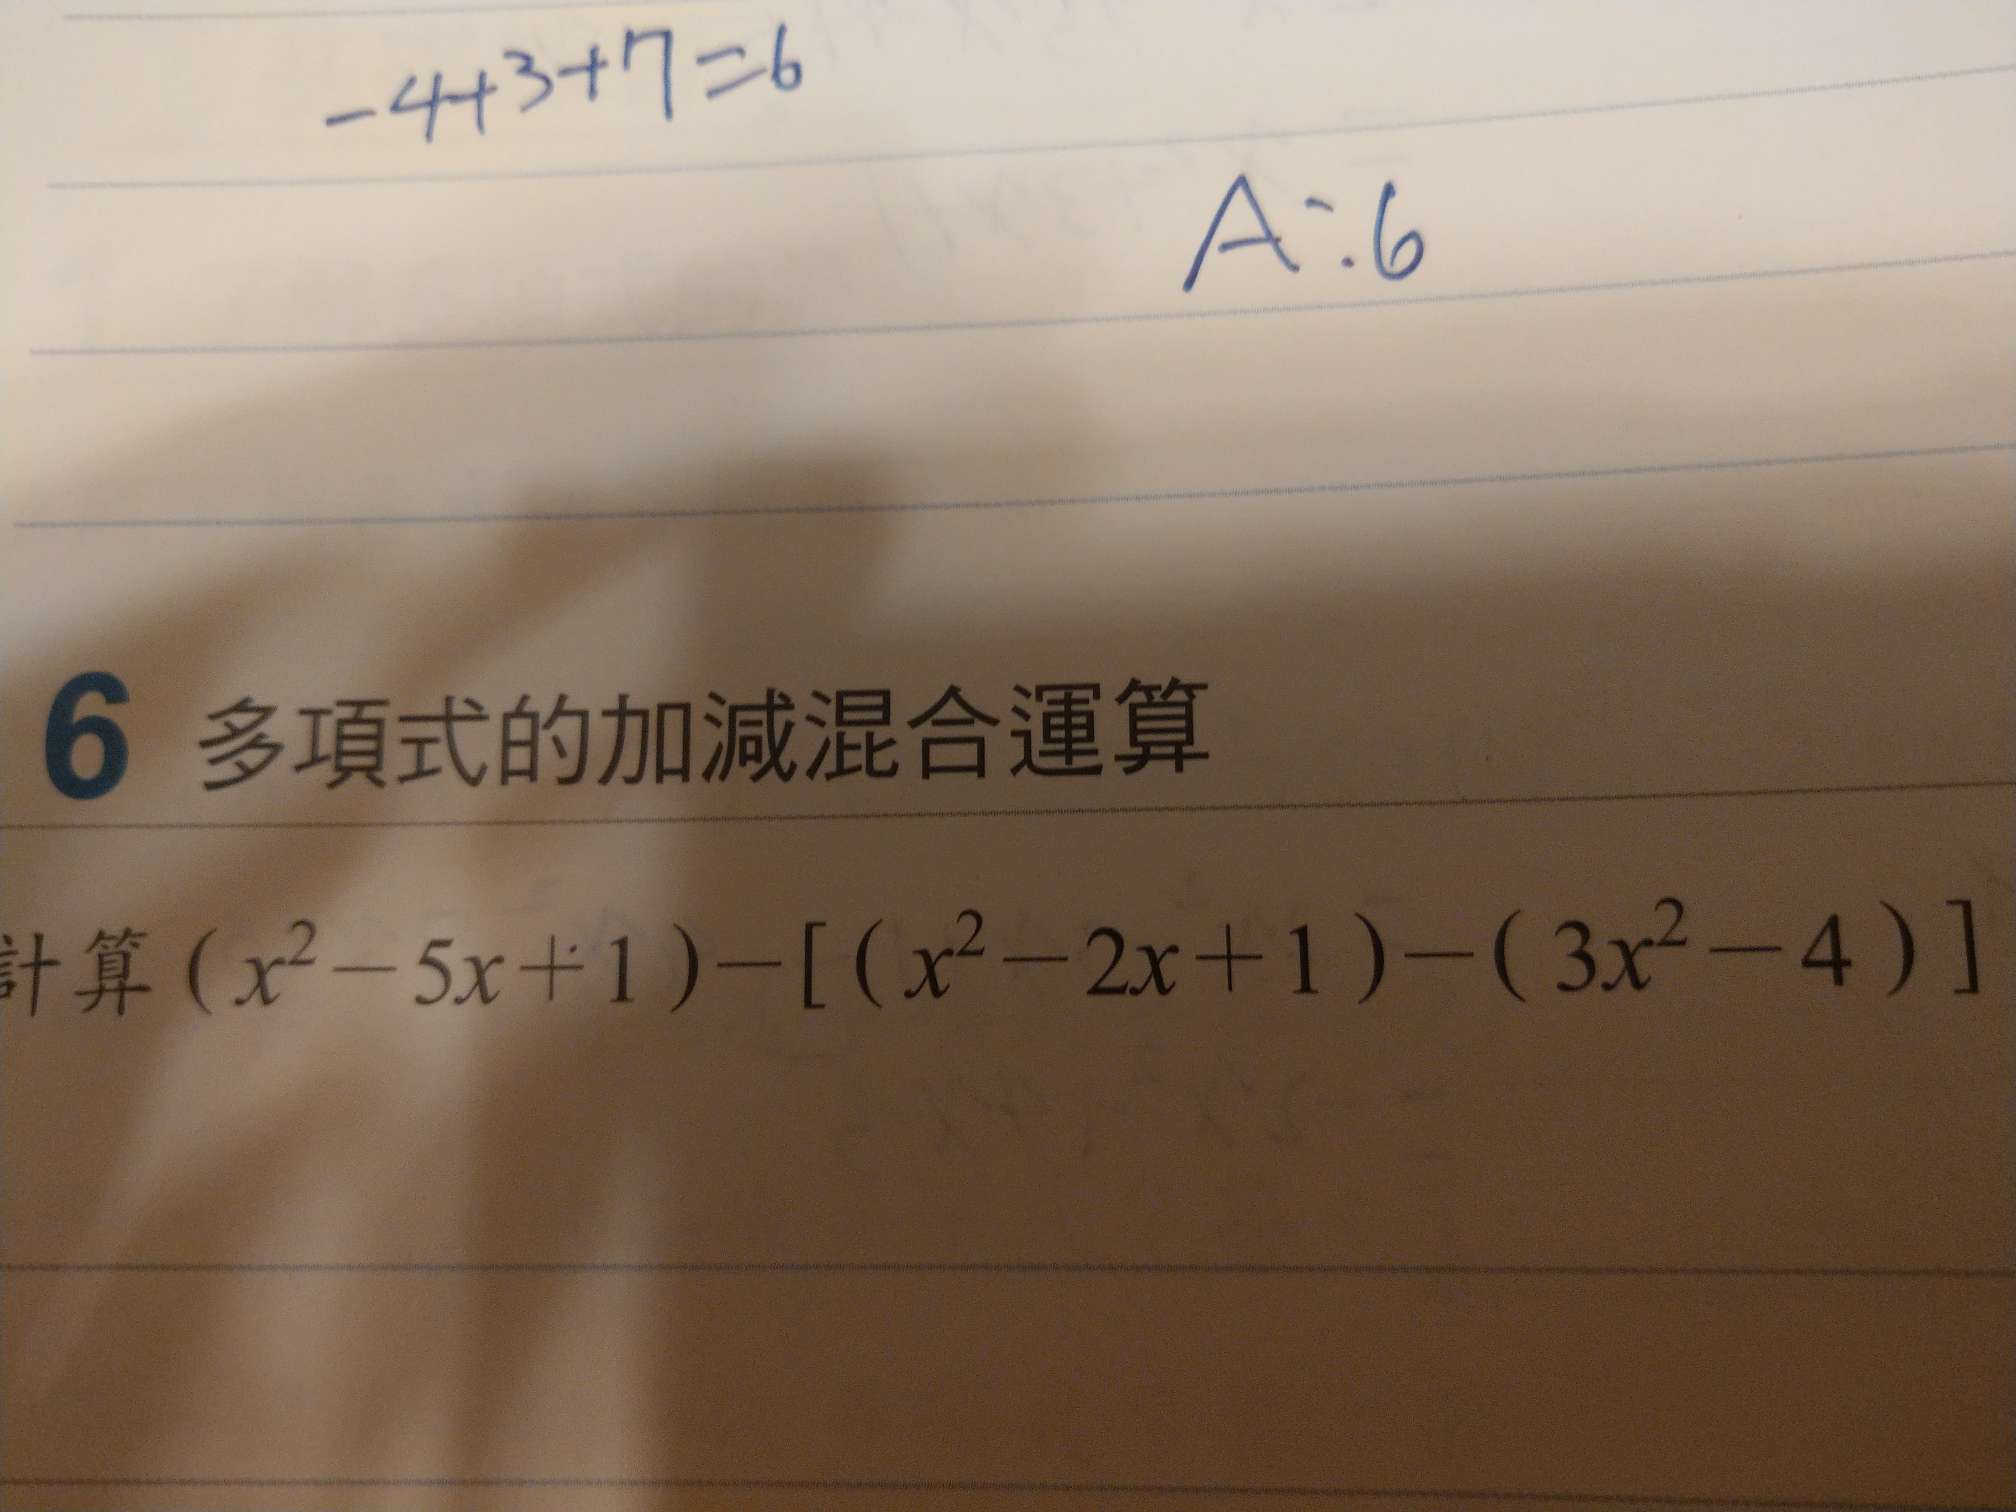 -4+3+7=6
A:6
6 多項式的加減混合運算
計算(x²-5x+1)-[(x²-2x+1)-(3x²-4)]